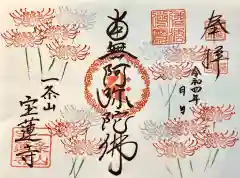 奉拝
令和四年
月 日
南無阿弥陀佛
一茶山
宝蓮寺